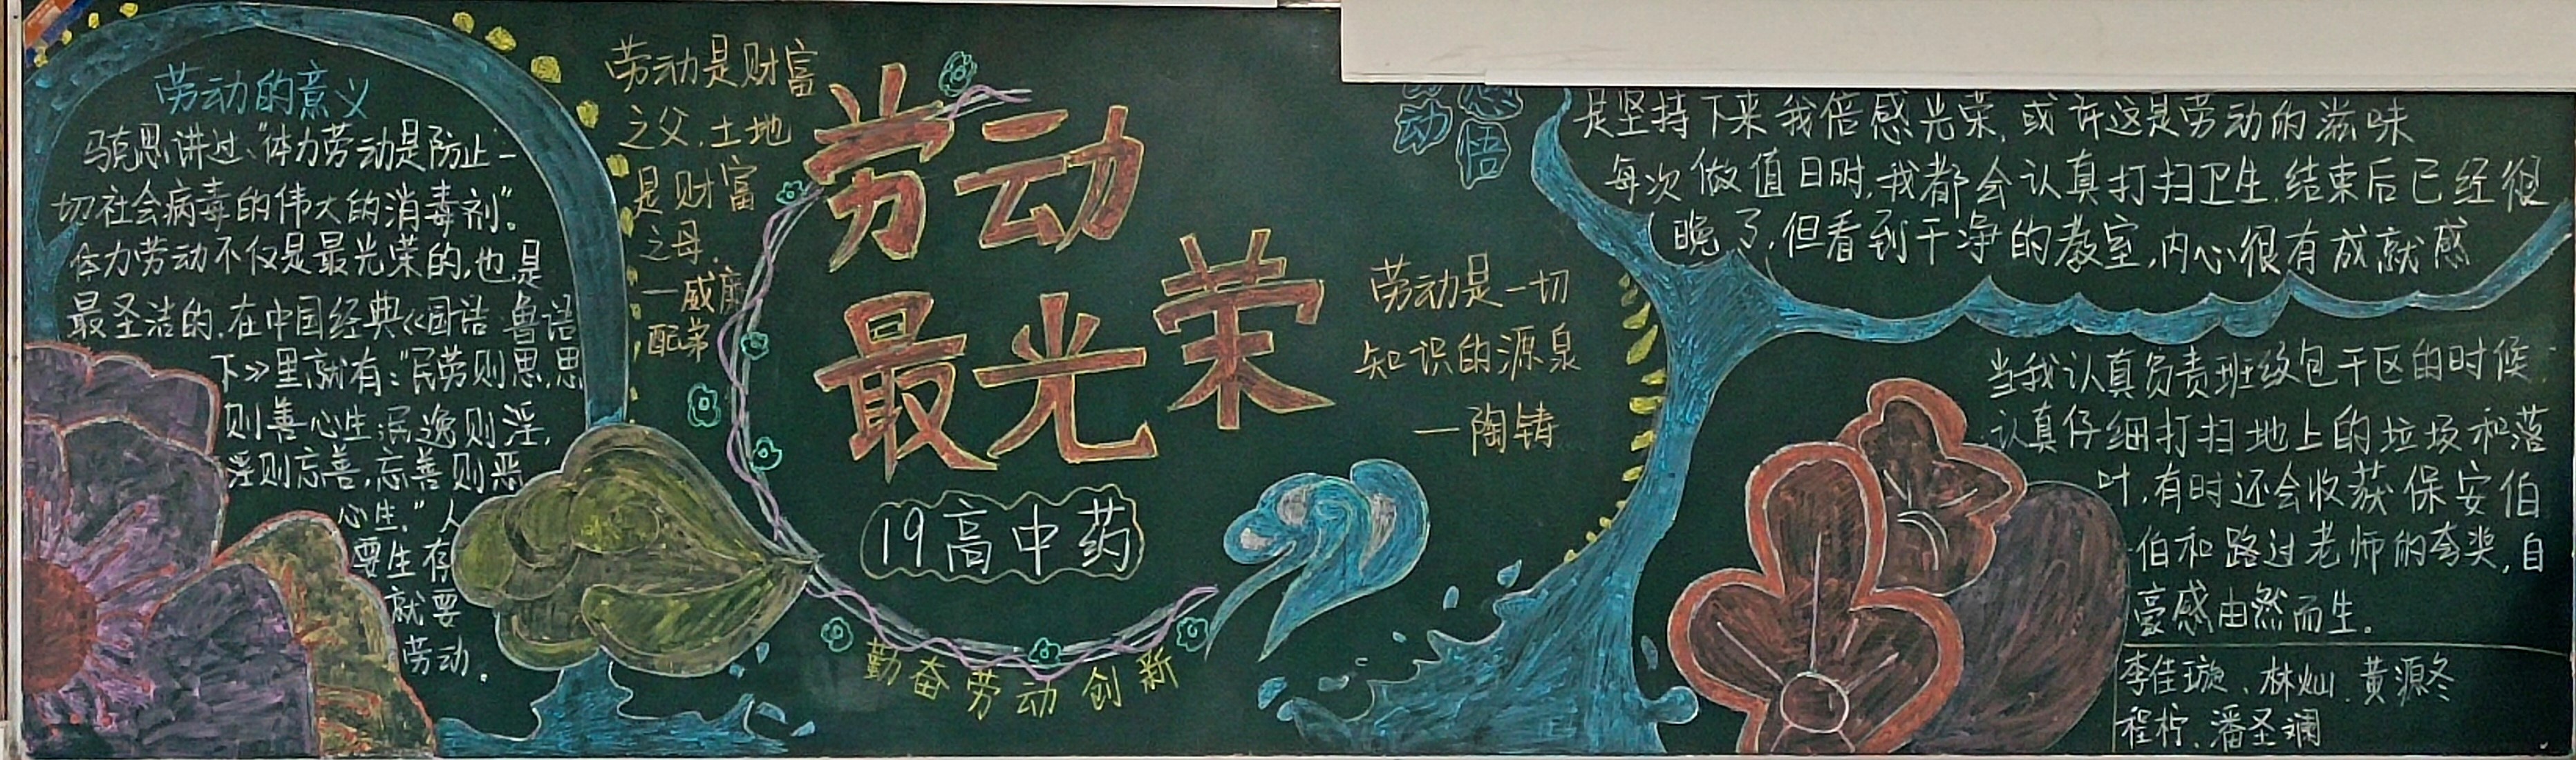 劳动的意义
马克思讲过“体力劳动是防止一
切社会病毒的伟大的消毒剂”。
体力劳动不仅是最光荣的,也是
最圣洁的.在中国经典《国语 鲁语
下》里就有:“民劳则思,思
则善心生,民逸则淫,
淫则忘善,忘善则恶
心生.”人
要生存
就要
劳动.
劳动是财富
之父,土地
是财富
之母.
—威廉
配弟
劳动
最光荣
19高中药
勤奋劳动创新
劳动是一切
知识的源泉
—陶铸
动
悟
是坚持下来我倍感光荣,或许这是劳动的滋味
每次做值日时,我都会认真打扫卫生.结束后已经很
晚了,但看到干净的教室,内心很有成就感
当我认真负责班级包干区的时候
认真仔细打扫地上的垃圾和落
叶,有时还会收获保安伯
伯和路过老师的夸奖,自
豪感由然而生。
李佳璇、林灿、黄源冬
程柠、潘圣斓